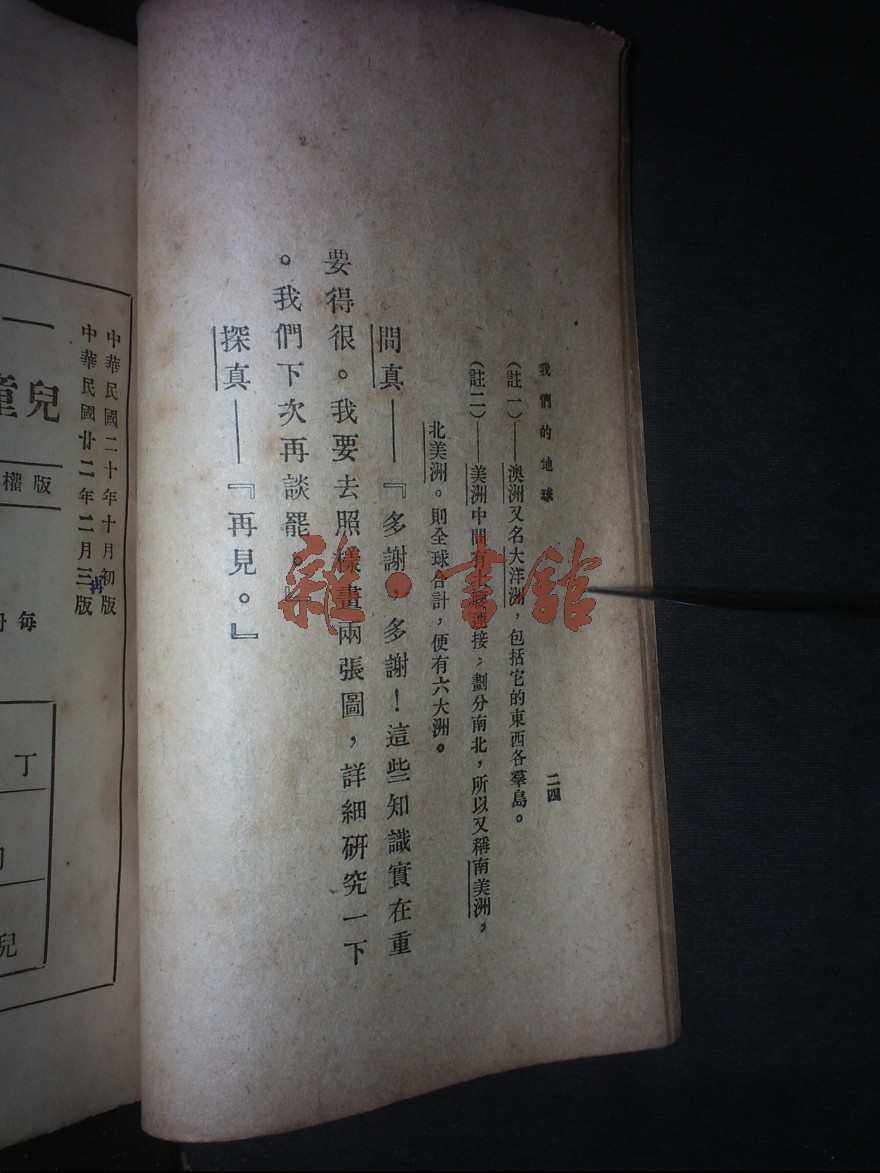 我們的地球
二四
（註一）——澳洲又名大洋洲，包括它的東西各羣島。
（註二）——美洲中間有土腰連接，劃分南北，所以又稱南美洲，
北美洲。則全球合計，便有六大洲。
問真——『多謝，多謝！這些知識實在重
要得很。我要去照樣畫兩張圖，詳細研究一下
。我們下次再談罷。』
探真——『再見。』
雜·書館
中華民國二十年十月初版
中華民國廿二年二月三版
再
一
兒童
版權
每
丁
兒